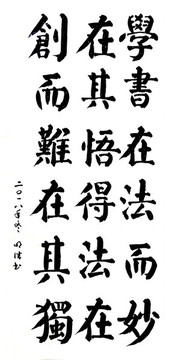 學書在法而妙
在其悟得法在
創而難在其獨
二〇一八年冬 明清书